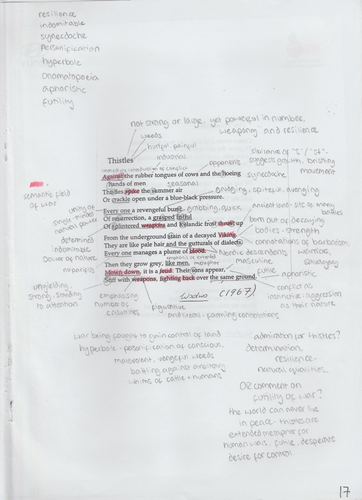 resilience
indomitable
synecdoche
personification
hyperbole
onomatopoeia
aphoristic
futility
not strong or large, yet potent in number,
weapons and resilience
weeds
hurtful, painful
Thistles
Against the rubber tongues of cows and the hoeing
hands of men
Thistles spike the summer air
Or crackle open under a blue-black pressure.
Every one a revengeful burst
Of resurrection, a grasped fistful
Of splintered weapons and Icelandic frost thrust up
From the underground stain of a decayed Viking.
They are like pale hair and the gutturals of dialects.
Every one manages a plume of blood.
Then they grow grey, like men.
Mown down, it is a feud. Their sons appear,
Stiff with weapons, fighting back over the same ground.
Wodwo (1967)
opponents
synecdoche
seasonal
suggest growth, bristling
movement
semantic field
of war
determined
indomitable
power of nature
emphasis
burn out of decaying
bodies - strength
connotations of barbarism
masculine
warriors,
aphoristic
unyielding,
strong, standing
to attention
emphasising
number of
casualties
figurative
conflict as
instinctive; aggression
as their nature
war being fought to gain control of land
hyperbole - personification of conscious,
malevolent, vengeful weeds
battling against
whims of cattle + humans
admiration for thistles?
determination
resilience -
natural qualities.
OR comment on
futility of war?
the world can never live
in peace - thistles are
extended metaphor for
human wars, futile, desperate
desire for control.
17